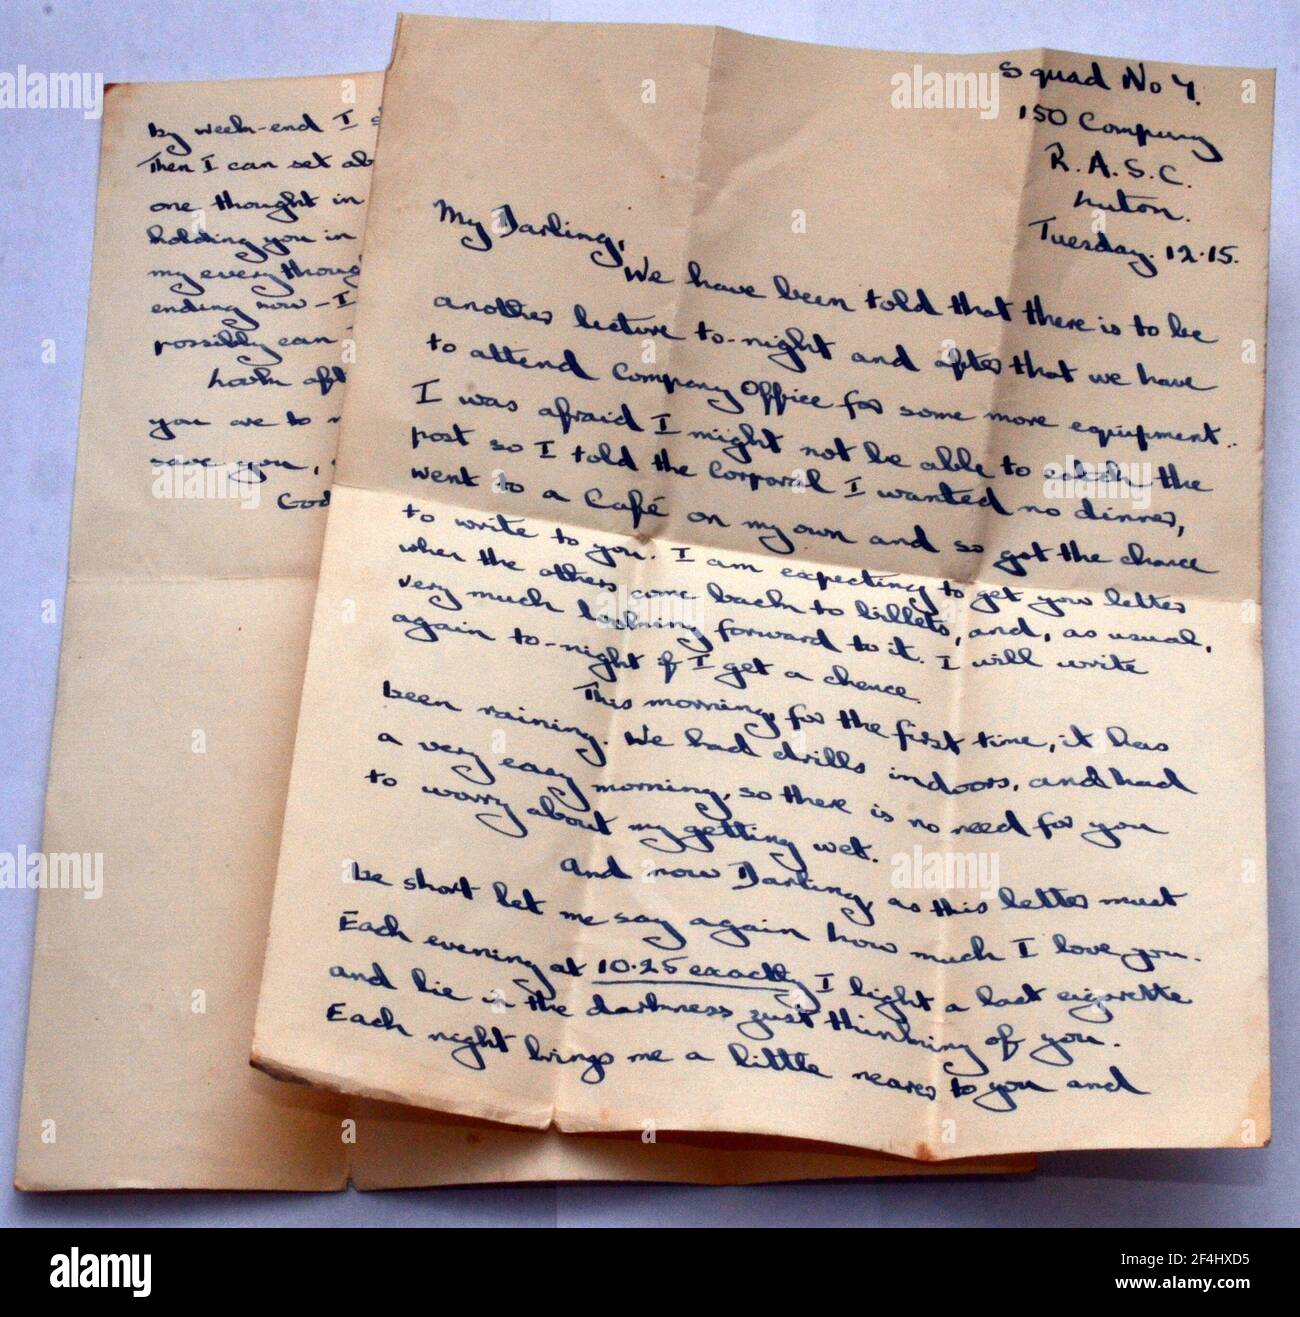 Squad No 4.
150 Company
R.A.S.C.
Luton.
Tuesday. 12.15.
My Darling,
We have been told that there is to be
another lecture to-night and after that we have
to attend Company Office for some more equipment.
I was afraid I might not be able to catch the
post so I told the Corporal I wanted no dinner,
went to a Café on my own and so got the chance
to write to you. I am expecting to get your letter
when the others come back to billets, and, as usual,
very much looking forward to it. I will write
again to-night if I get a chance.
This morning, for the first time, it has
been raining. We had drills indoors, and had
a very easy morning, so there is no need for you
to worry about my getting wet.
And now Darling, as this letter must
be short let me say again how much I love you.
Each evening at 10.25 exactly I light a last cigarette
and lie in the darkness just thinking of you.
Each night brings me a little nearer to you and
by week-end I
Then I can set
one thought in
holding you in
my every
ending now - I
possibly can
Look
you are to
save you,
God
alamy
alamy
Image ID: 2F4HXD5
www.alamy.com